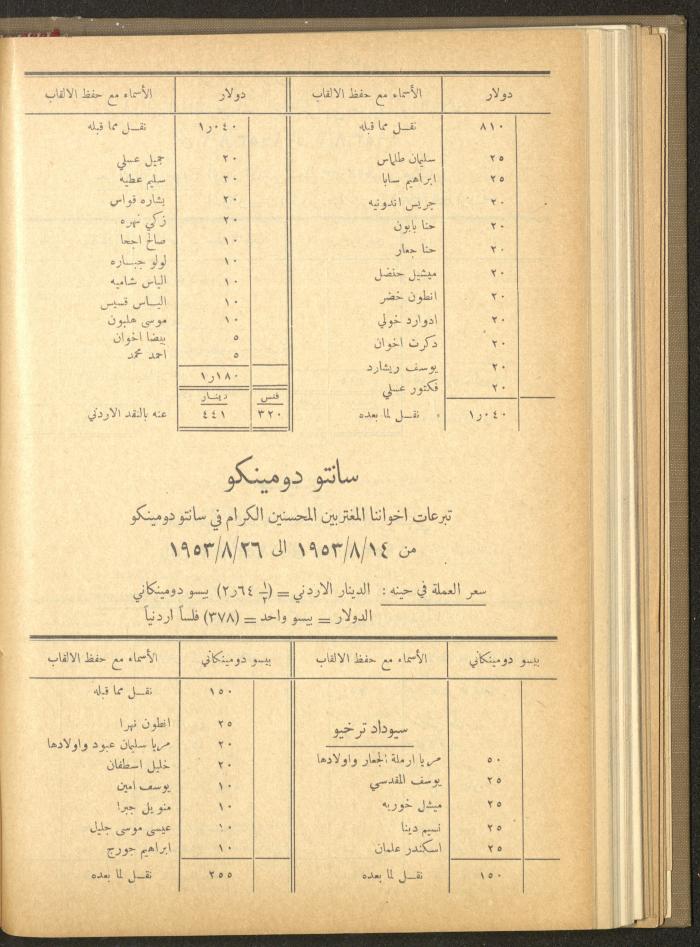 دولار	الأسماء مع حفظ الالقاب
٨١٠	نقـل مما قبله
٢٥	سليمان طلماس
٢٥	ابراهيم سابا
٢٠	جريس اندونيه
٢٠	حنا بابون
٢٠	حنا جعار
٢٠	ميشيل حنضل
٢٠	انطون خضر
٢٠	ادوارد خولي
٢٠	دكرت اخوان
٢٠	يوسف ريشارد
٢٠	فكتور عسلي
١٫٠٤٠	نقـل لما بعده
دولار	الأسماء مع حفظ الالقاب
١٫٠٤٠	نقـل مما قبله
٢٠	جميل عسلي
٢٠	سليم عطيه
٢٠	بشاره قواس
٢٠	زكي نهره
١٠	صالح اجحا
١٠	لولو جبـاره
١٠	الياس شاميه
١٠	اليـاس قسيس
١٠	موسى هلبون
٥	بيضا اخوان
٥	احمد محمد
١٫١٨٠
فلس	دينـار
٣٢٠	٤٤١	عنه بالنقد الاردني
سانتو دومينكو
تبرعات اخواننا المغتربين المحسنين الكرام في سانتو دومينكو
من ١٩٥٣/٨/١٤ الى ١٩٥٣/٨/٢٦
سعر العملة في حينه : الدينار الاردني = (٢٫٦٤ ½) بيسو دومينكاني
الدولار = بيسو واحد = (٣٧٨) فلساً اردنياً
بيسو دومينكاني	الأسماء مع حفظ الالقاب
سيوداد ترخيو
٥٠	مريا ارملة الجعار واولادها
٢٥	يوسف المقدسي
٢٥	ميشل خوريه
٢٥	نسيم دينا
٢٥	اسكندر علمان
١٥٠	نقـل لما بعده
بيسو دومينكاني	الأسماء مع حفظ الالقاب
١٥٠	نقـل مما قبله
٢٥	انطون نهرا
٢٠	مريا سليمان عبود واولادها
٢٠	خليل اسطفان
١٠	يوسف امين
١٠	منويل جبرا
١٠	عيسى موسى جليل
١٠	ابراهيم جورج
٢٥٥	نقـل لما بعده